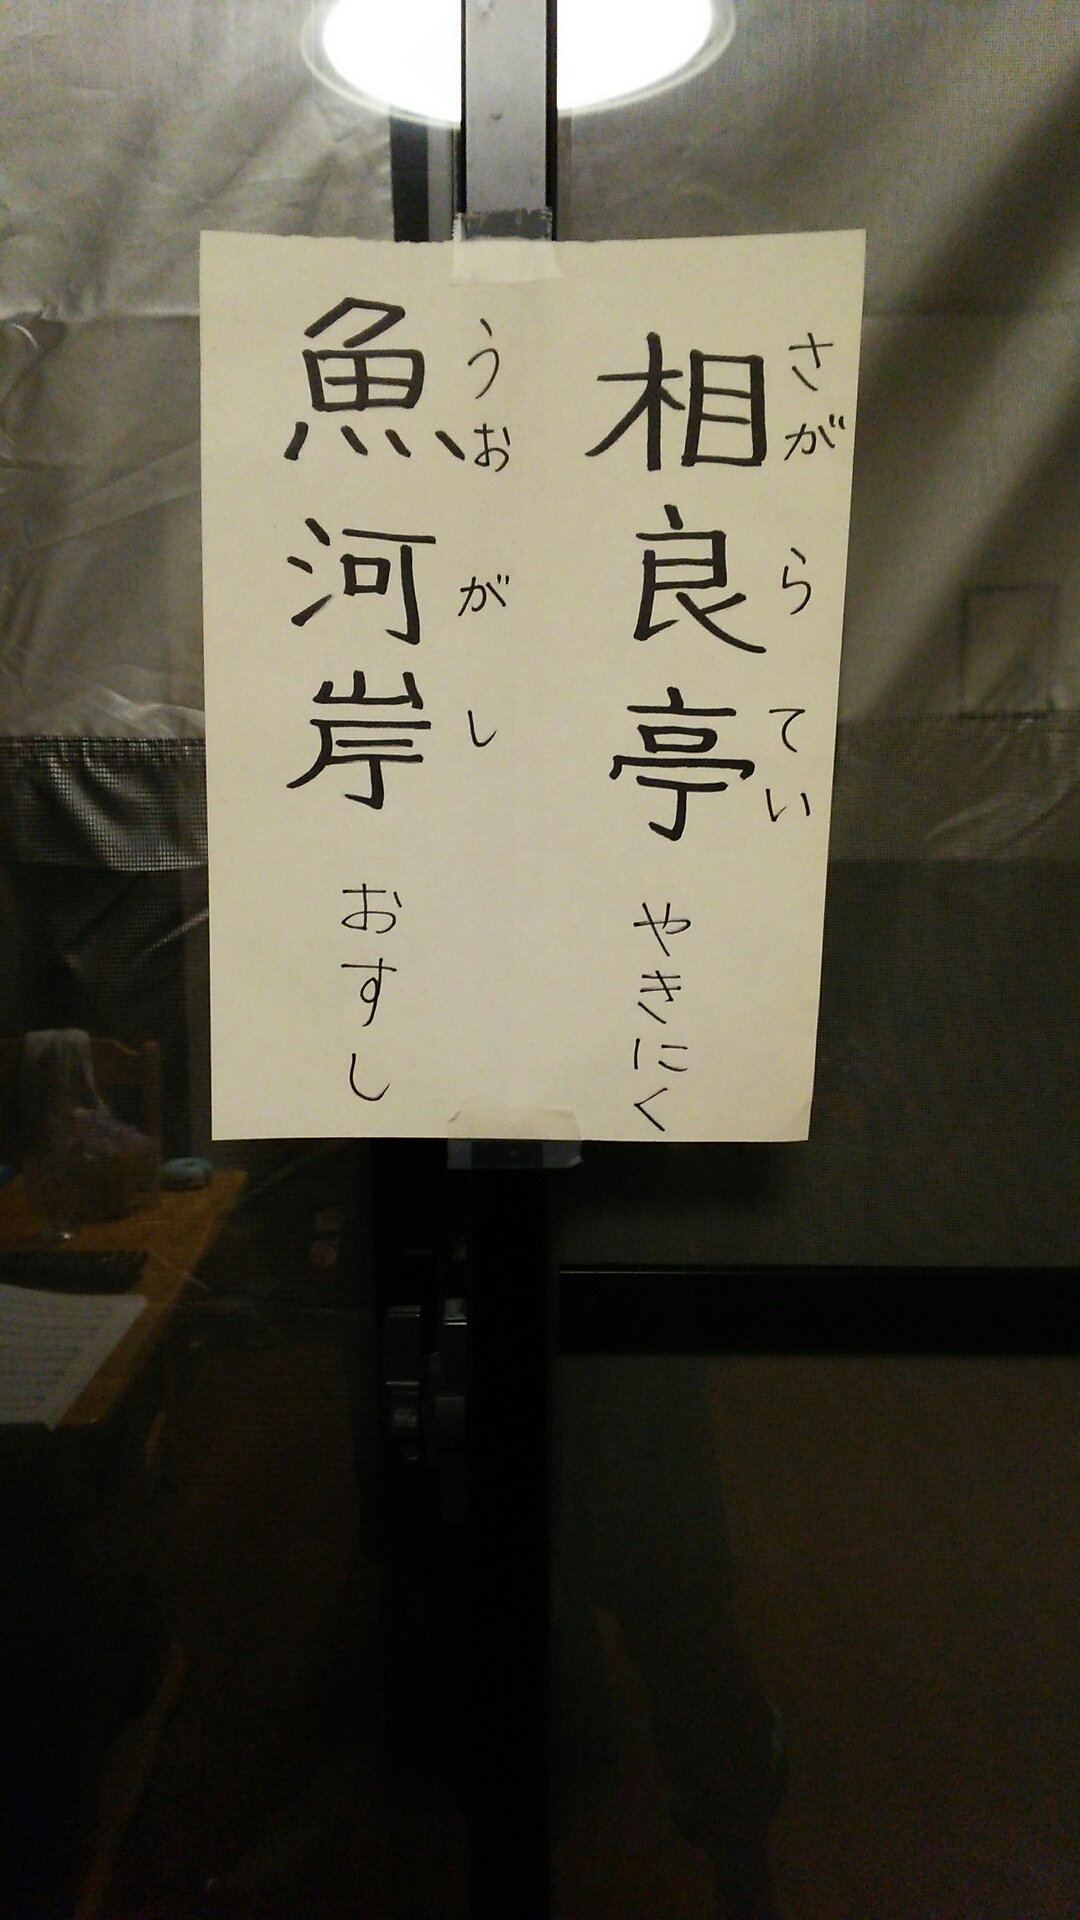 相良亭 やきにく
さがらてい
魚河岸 おすし
うおがし